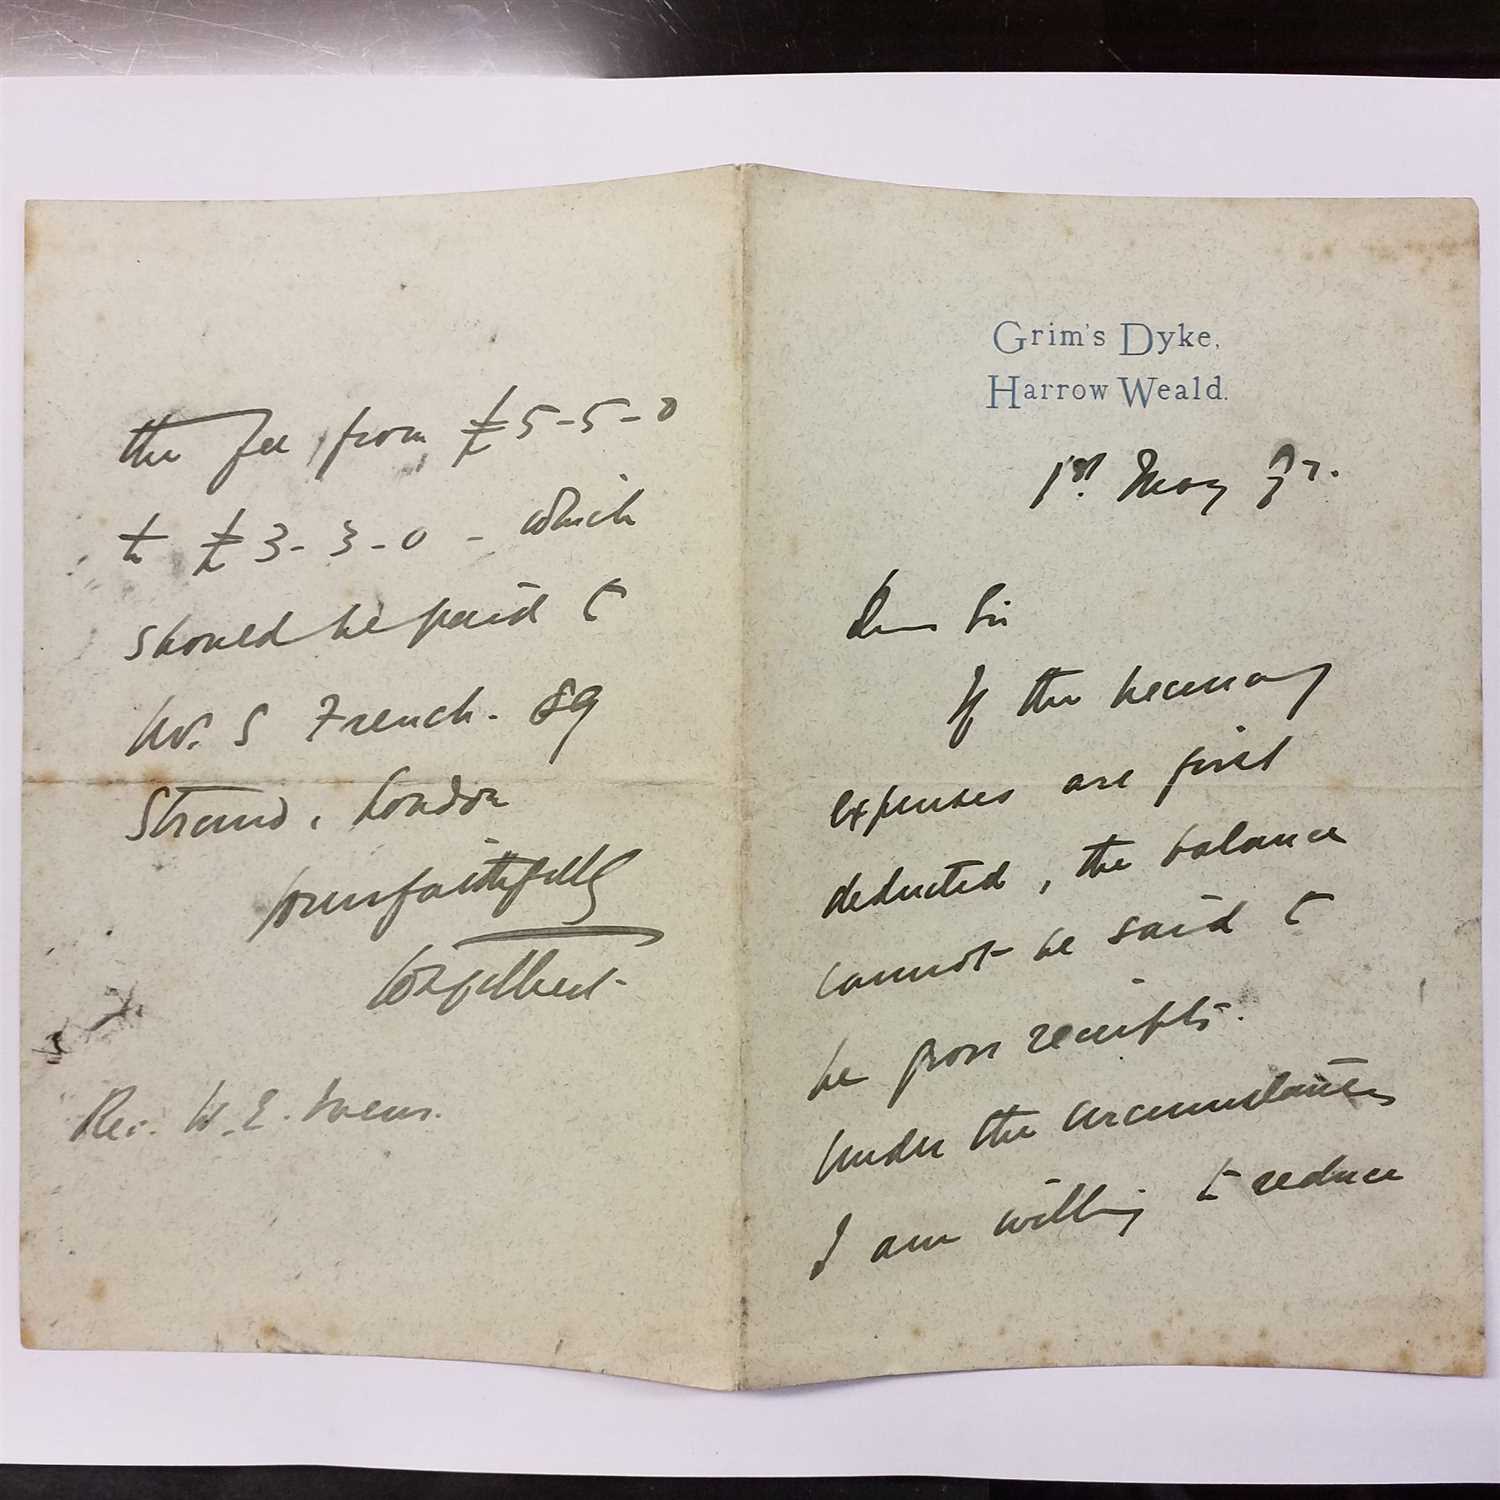 Grim's Dyke,
Harrow Weald.
1st. May 97.
Dear Sir
If the necessary
expenses are first
deducted, the balance
cannot be said to
be gross receipts.
Under the circumstances
I am willing to reduce
the fee from £5-5-0
to £3-3-0 - which
should be paid to
Mr. S French. 89
Strand, London
Yours faithfully
WSGilbert
Rev. W. E.